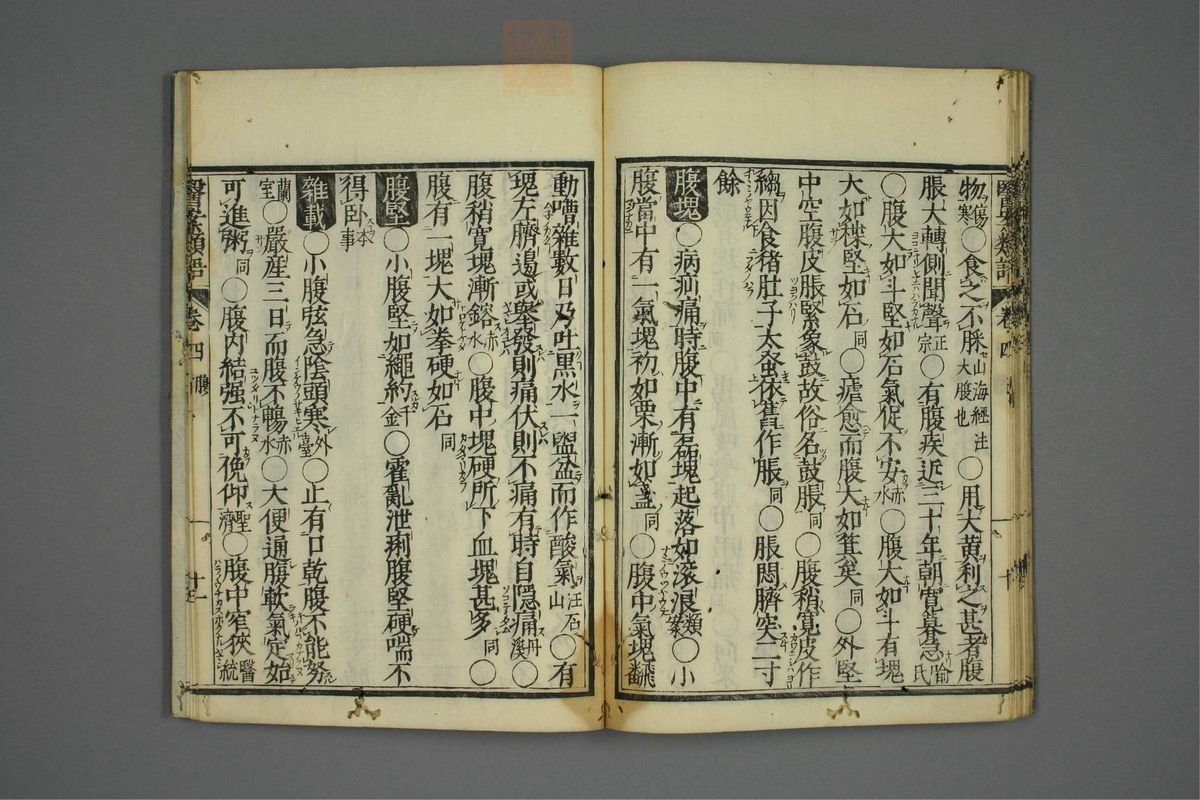 物傷寒○食之不䐈山海經注大腹也○用大黃利之甚者腹
脹大轉側聞聲正宗○有腹疾近三十年朝寛暮急喻氏
○腹大如斗堅如石氣促不安赤水○腹大如斗有塊
大如楪堅如石同○瘧愈而腹大如箕矣同○外堅
中空腹皮脹緊象鼓故俗名鼓脹同○腹稍寛皮作
縐因食猪肚子太蚤依舊作脹同○脹悶臍突二寸
餘
腹塊○病疝痛時腹中有磊塊起落如滾浪類案○小
腹當中有一氣塊初如栗漸如盞同○腹中氣塊飛翻
動嘈雜數日乃吐黑水一盥盆而作酸氣汪石山○有
塊左臍邊或舉發則痛伏則不痛有時自隱痛丹溪○
腹稍寛塊漸鎔赤水○腹中塊硬所下血塊甚多同○
腹有一塊大如拳硬如石同
腹堅○小腹堅如繩約千金○霍亂泄痢腹堅硬喘不
得臥本事
雜載○小腹弦急陰頭寒外臺○止有口乾腹不能努
蘭室○嚴産三日而腹不暢赤水○大便通腹軟氣定始
可進粥同○腹内結强不可俛仰聖濟○腹中窄狹醫統
醫案類語 卷四 腹 十一